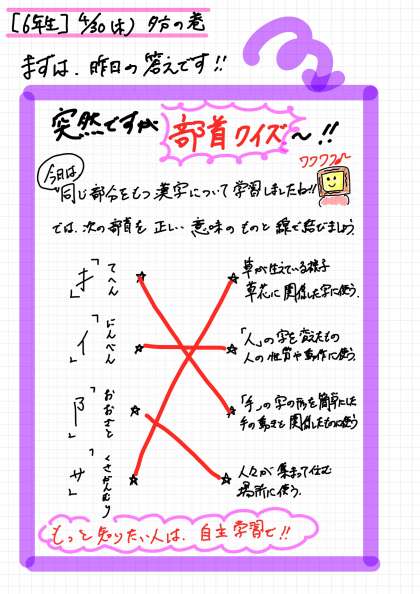 [6年生] 4/30(木) 夕方の巻
まずは、昨日の答えです!!
突然ですが 部首クイズ〜!!
ワクワク〜
今日は
"同じ部分をもつ漢字について学習しましたね!!
では、次の部首を正しい意味のものと線で結びましょう。
「扌」 てへん
草が生えている様子
草花に関係した字に使う。
「亻」 にんべん
「人」の字を変えたもの
人の性質や動作に使う。
「阝」 おおざと
「手」の字の形を簡単にした
手の動きと関係したものに使う
「サ」 くさかんむり
人々が集まって住む
場所に使う。
もっと知りたい人は、自主学習で!!